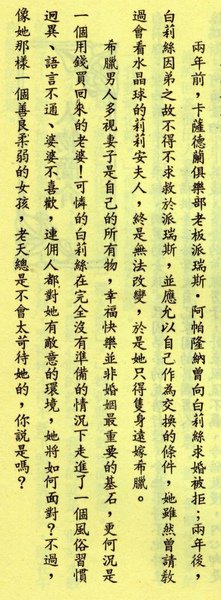 兩年前，卡薩德蘭俱樂部老板派瑞斯·阿帕隆納曾向白莉絲求婚被拒；兩年後，
白莉絲因弟之故不得不求救於派瑞斯，並應允以自己作為交換的條件，她雖然曾請教
過會看水晶球的莉莉安夫人，終是無法改變，於是她只得隻身遠嫁希臘。
希臘男人多視妻子是自己的所有物，幸福快樂並非婚姻最重要的基石，更何況是
一個用錢買回來的老婆！可憐的白莉絲在完全沒有準備的情況下走進了一個風俗習慣
迥異、語言不通、婆婆不喜歡，連佣人都對她有敵意的環境，她將如何面對？不過，
像她那樣一個善良柔弱的女孩，老天總是不會太苛待她的，你說是嗎？